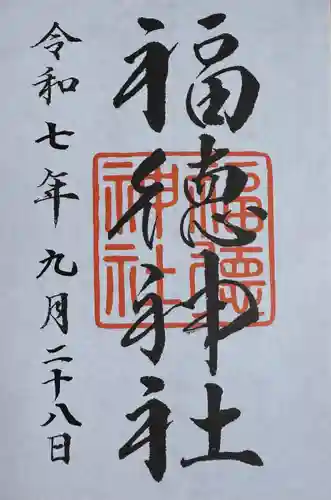 福徳神社
令和七年九月二十八日
福徳
神社